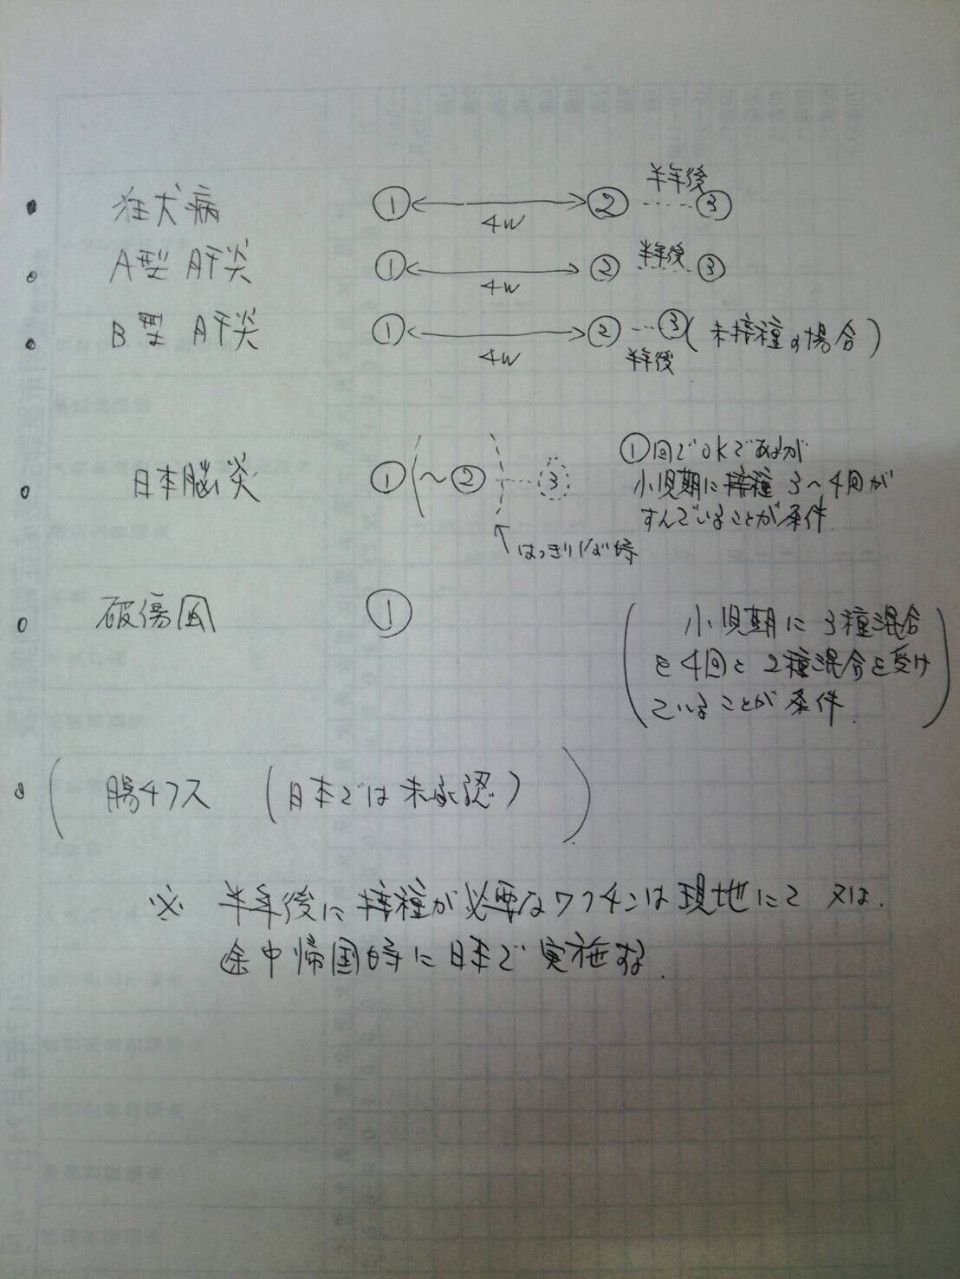 狂犬病 ① 4W ② 半年後 ③
A型肝炎 ① 4W ② 半年後 ③
B型肝炎 ① 4W ② 半年後 ③ (未接種の場合)
日本脳炎 ① (~② ③
①回でOKであるが
小児期に接種3~4回が
すんでいることが条件
破傷風 ①
(小児期に3種混合
を4回と2種混合を受け
ていることが条件.)
(腸チフス (日本では未承認))
※ 半年後に接種が必要なワクチンは現地にて 又は.
途中帰国時に日本で実施する.